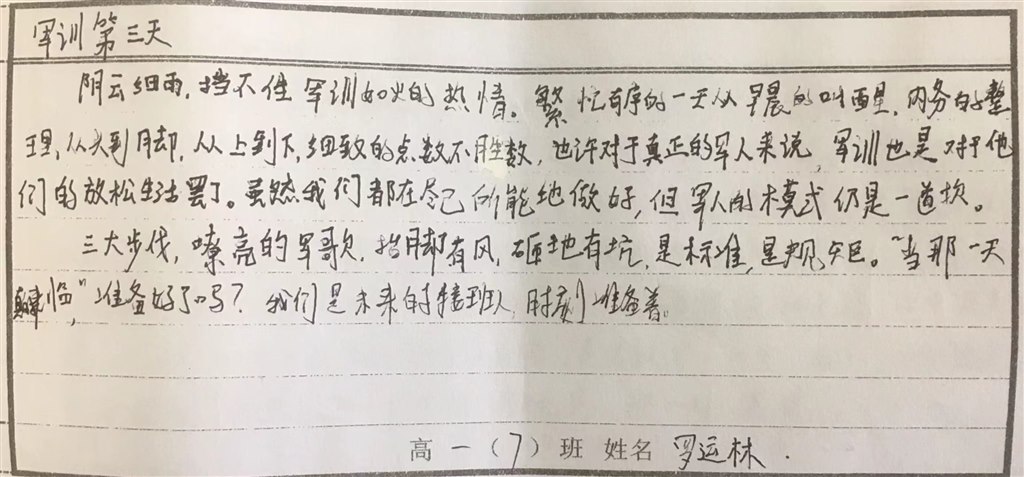 军训第三天
阴云细雨,挡不住军训如火的热情。繁忙有序的一天从早晨的叫醒,内务的整
理,从头到脚,从上到下,细致的点数不胜数,也许对于真正的军人来说,军训也是对于他
们的放松生活罢了。虽然我们都在尽己所能地做好,但军人的模式仍是一道坎。
三大步伐,嘹亮的军歌,抬脚有风,砸地有坑,是标准,是规矩。"当那一天
真来临,"准备好了吗?我们是未来的接班人,时刻准备着。
高一(7)班 姓名 罗运林.